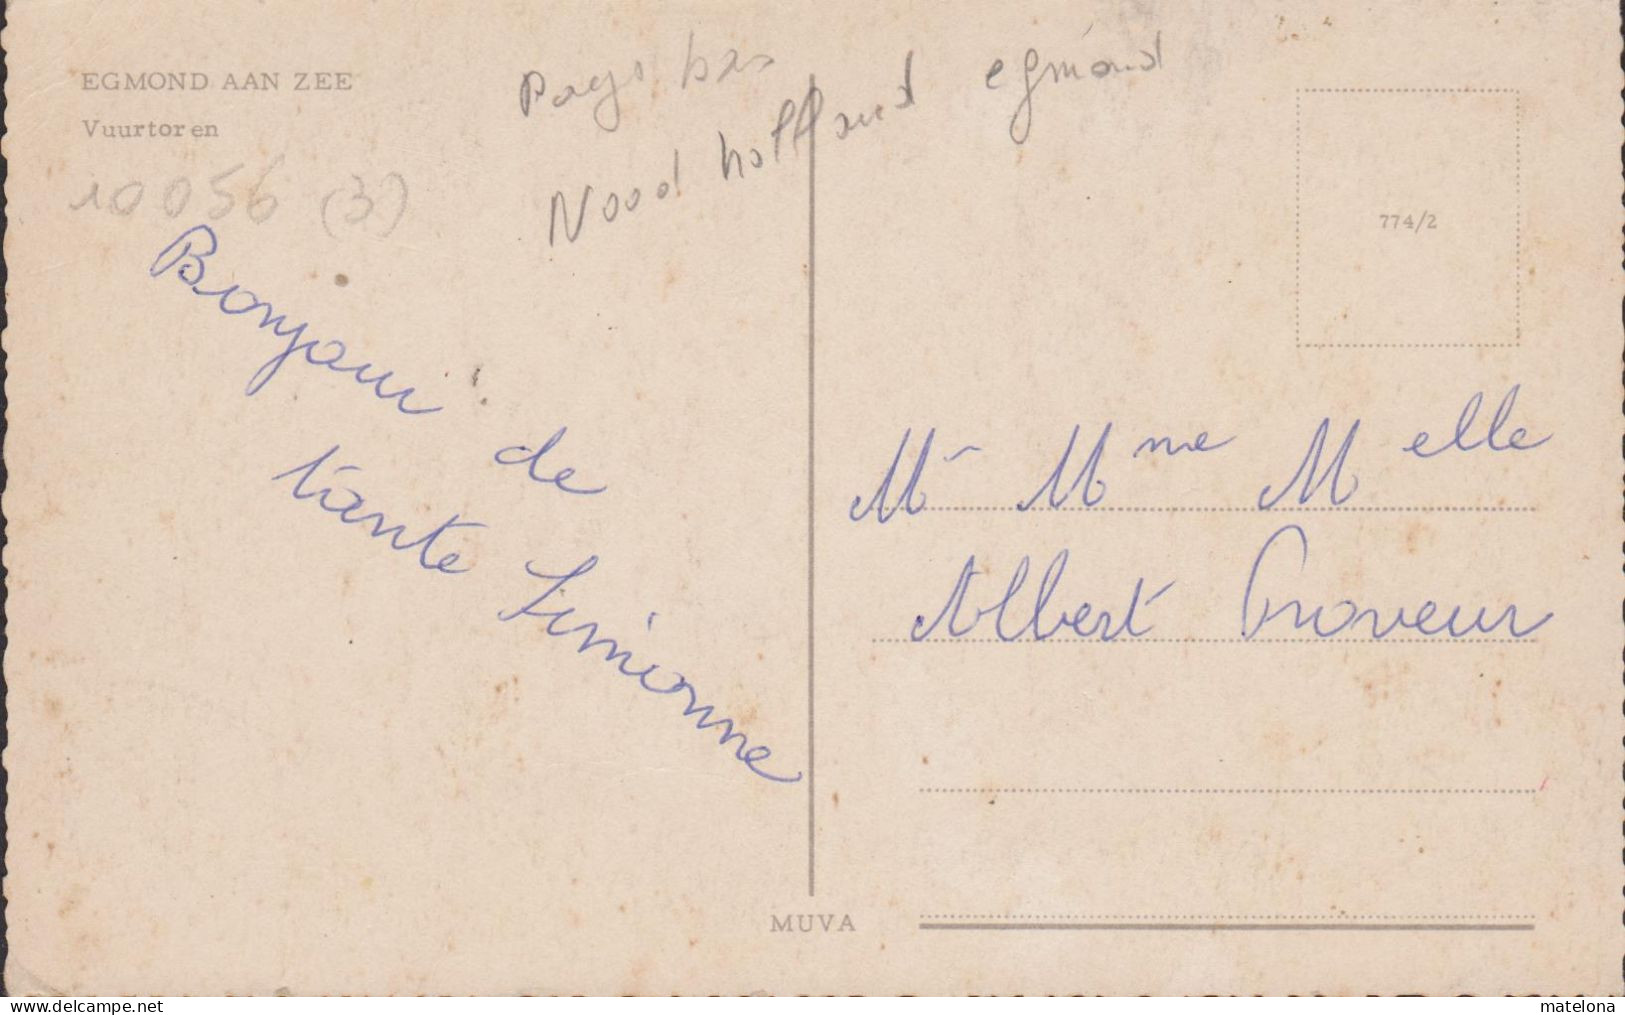 EGMOND AAN ZEE
Vuurtoren
10056 (3)
Pays bas
Nood holland egmond
774/2
Bonjour de
tante Simonne
Mr Mme Melle
Albert Proveur
MUVA
www.delcampe.net
matelona